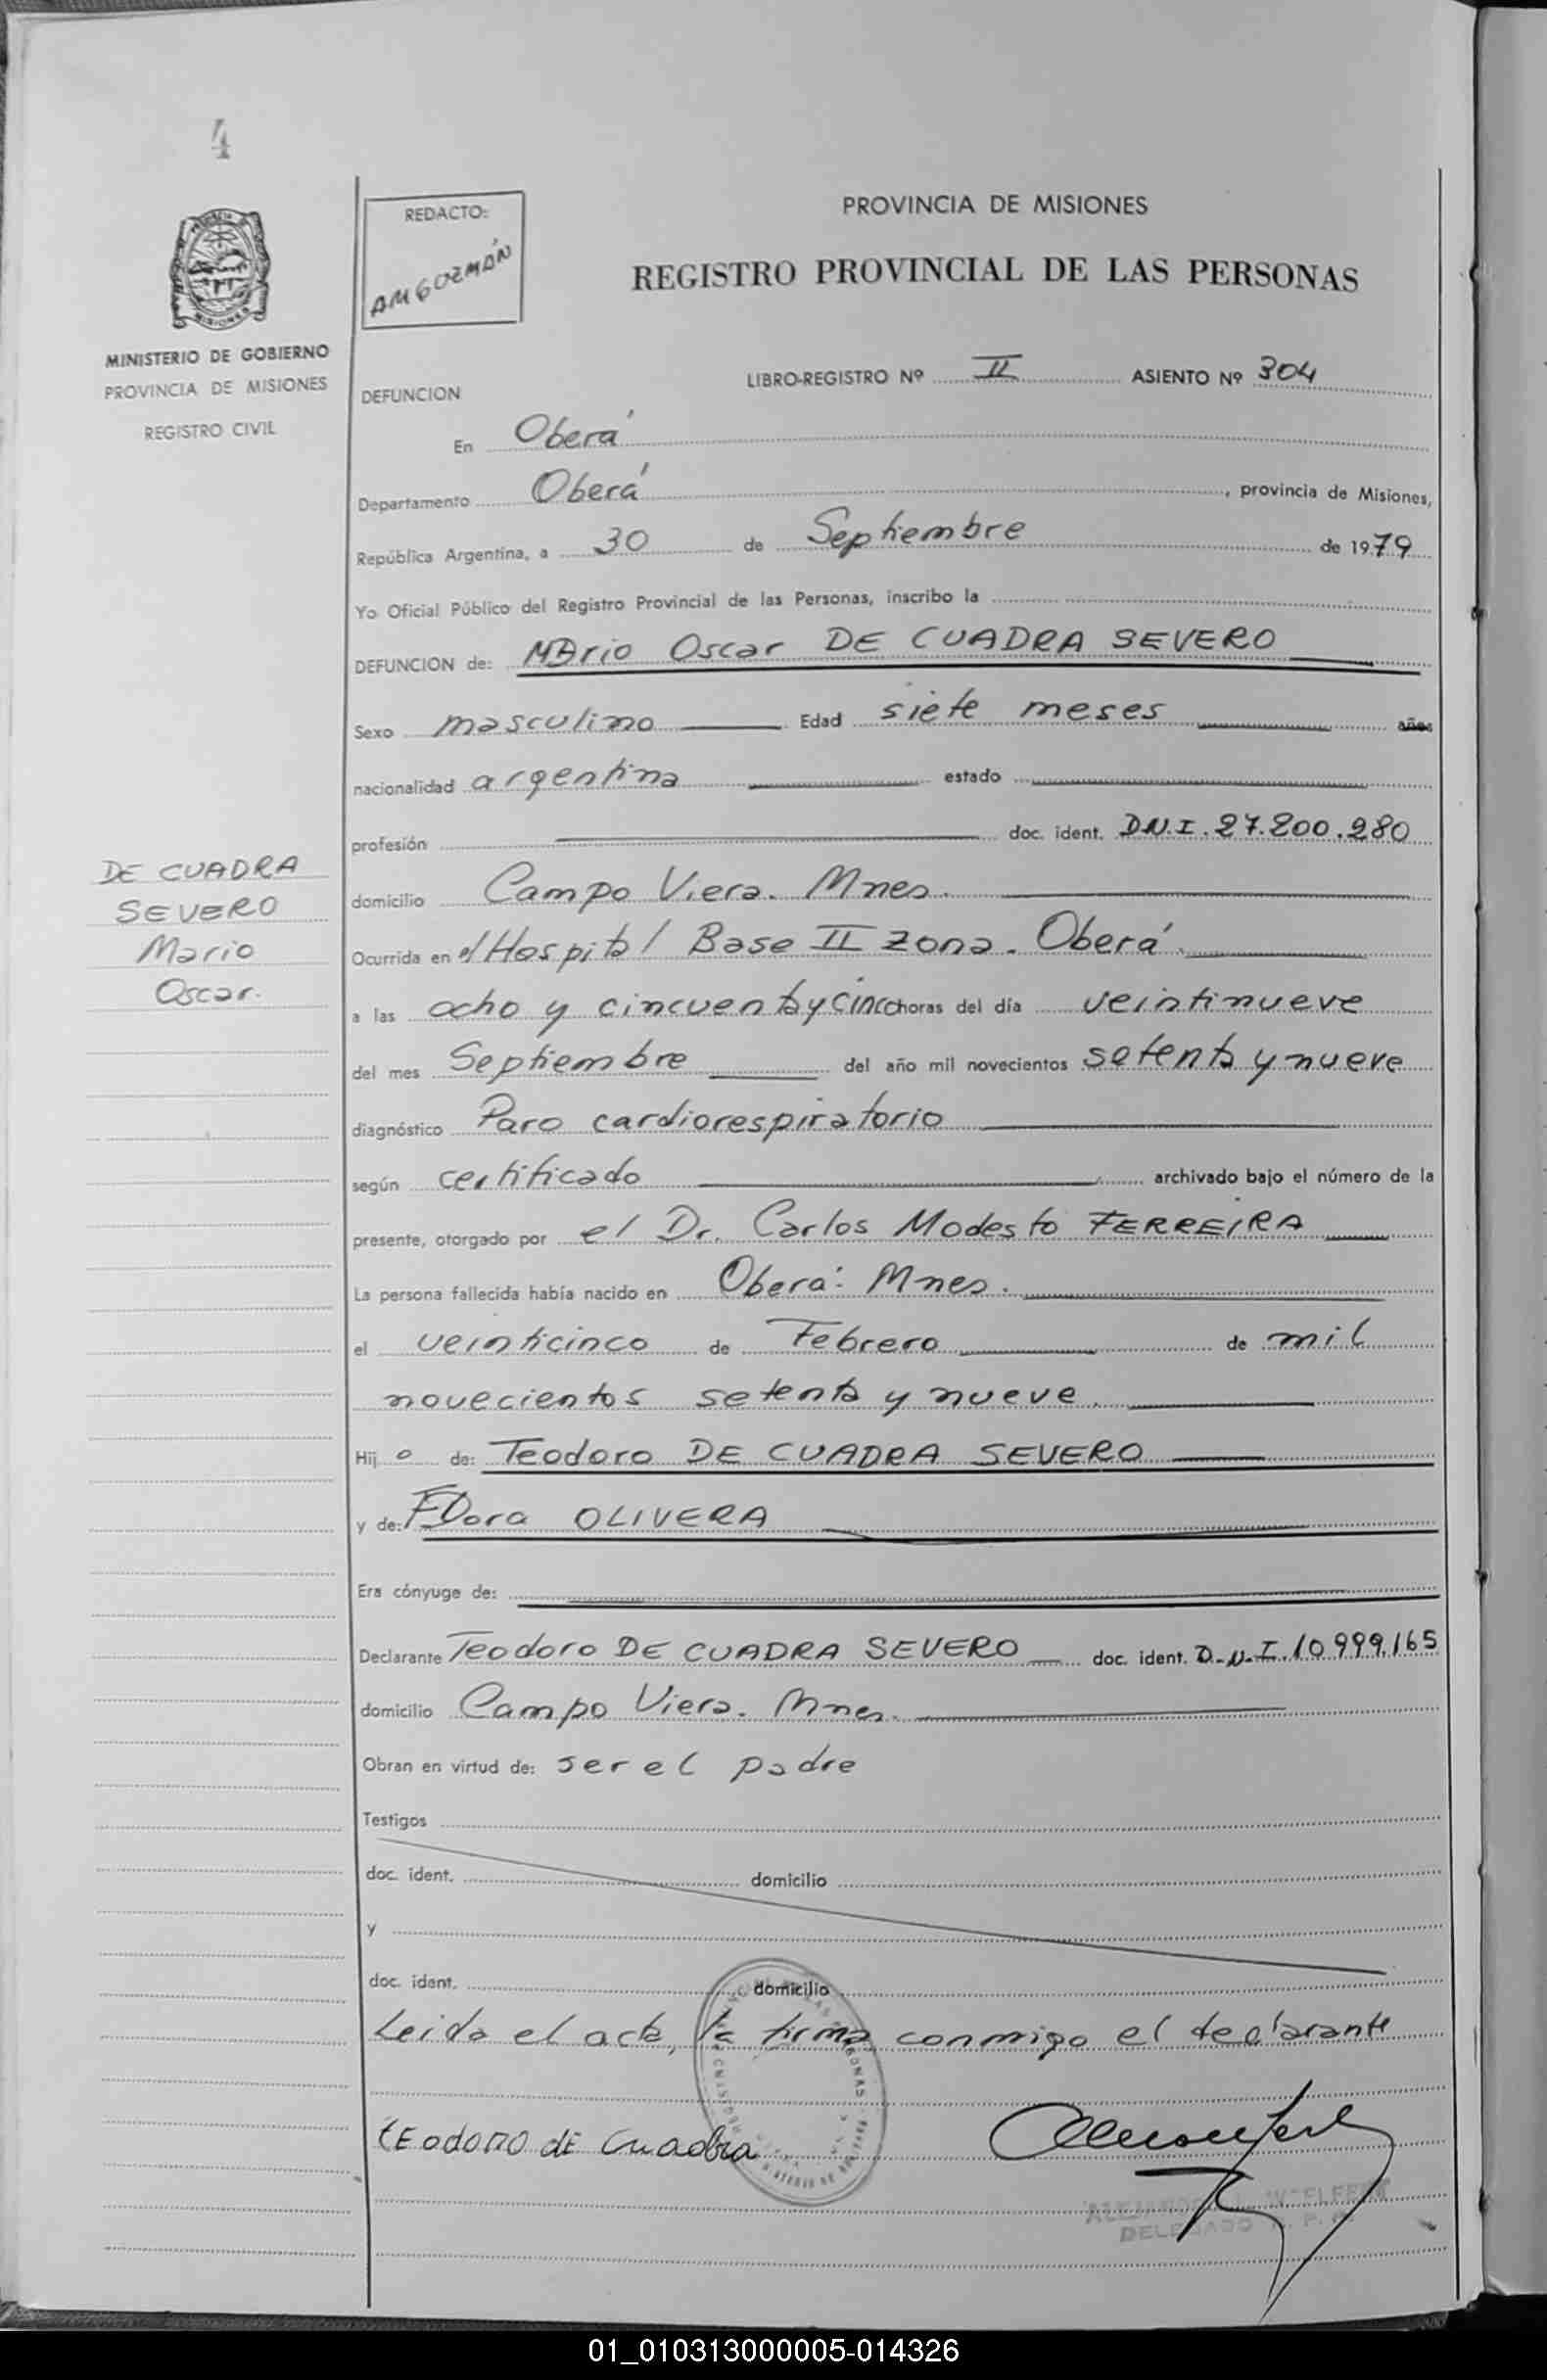 4
REDACTO:
AMGUZMÁN
PROVINCIA DE MISIONES
REGISTRO PROVINCIAL DE LAS PERSONAS
MISIONES
MINISTERIO DE GOBIERNO
PROVINCIA DE MISIONES
REGISTRO CIVIL
DEFUNCION
LIBRO-REGISTRO Nº II ASIENTO Nº 304
En Oberá
Departamento Oberá, provincia de Misiones,
República Argentina, a 30 de Septiembre de 1979
Yo Oficial Público del Registro Provincial de las Personas, inscribo la
DEFUNCION de: Mario Oscar DE CUADRA SEVERO
Sexo masculino Edad siete meses años
nacionalidad argentina estado
profesión doc. ident. D.N.I. 27.200.280
DE CUADRA
SEVERO
Mario
Oscar.
domicilio Campo Viera. Mnes.
Ocurrida en el Hospital Base II zona. Oberá.
a las ocho y cincuenta y cinco horas del día veintinueve
del mes Septiembre del año mil novecientos setenta y nueve
diagnóstico Paro cardiorespiratorio
según certificado archivado bajo el número de la
presente, otorgado por el Dr. Carlos Modesto FERREIRA
La persona fallecida había nacido en Oberá. Mnes.
el veinticinco de Febrero de mil
novecientos setenta y nueve.
Hijo de: Teodoro DE CUADRA SEVERO
y de: Flora OLIVERA
Era cónyuge de:
Declarante Teodoro DE CUADRA SEVERO doc. ident. D.N.I. 10.999.165
domicilio Campo Viera. Mnes.
Obran en virtud de: ser el padre
Testigos
doc. ident. domicilio
y
doc. ident. domicilio
Leida el acta, la firma conmigo el declarante
tEodoro dE Cuadra
DELEGADO R. P. P.
01_010313000005-014326